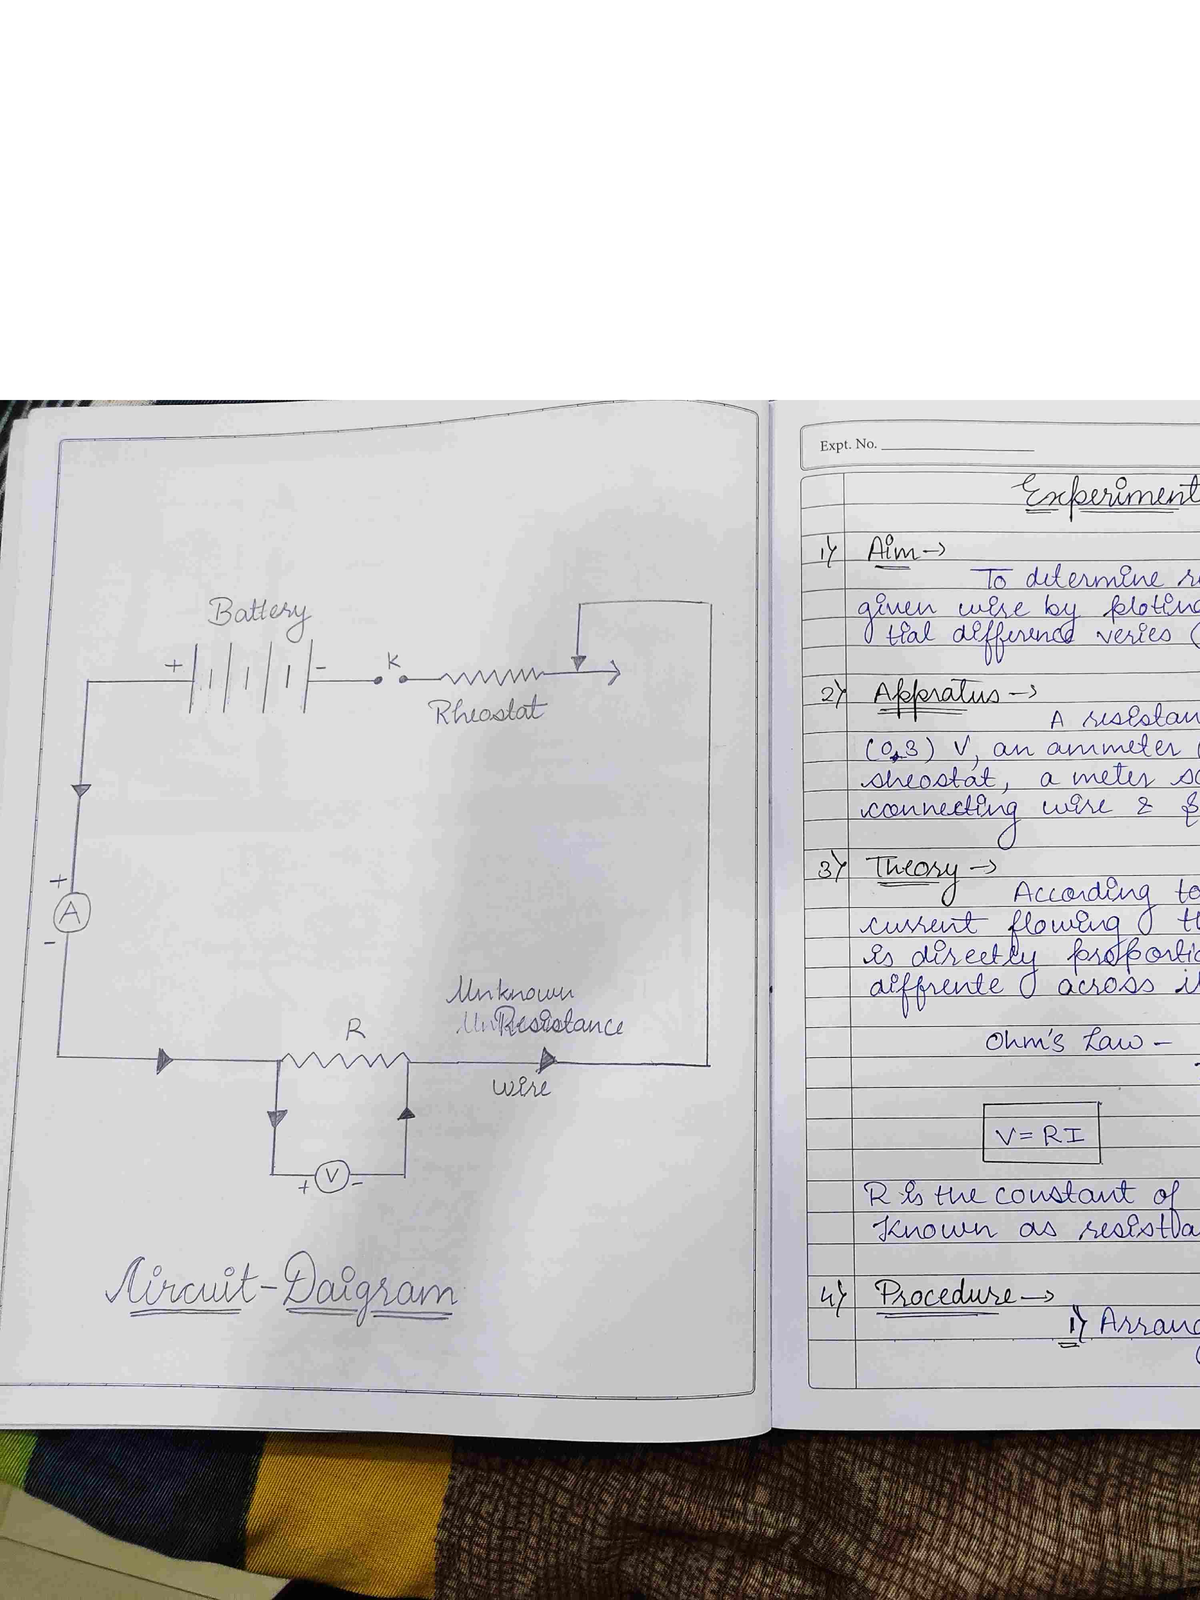 Battery
+ - K
Rheostat
+
A
-
Unknown
Resistance
R
wire
+ V -
Circuit-Daigram
Expt. No.
Experiment
1) Aim →
To determine
given wire by ploting
tial difference veries (
2) Appratus →
A resistan
(0,3) V, an ammeter (
rheostat, a meter sc
connecting wire &
3) Theory →
According to
current flowing th
is directly proportio
diffrente across i
Ohm's Law -
V = RI
R is the constant of
Known as resista
4) Procedure →
1) Arrang